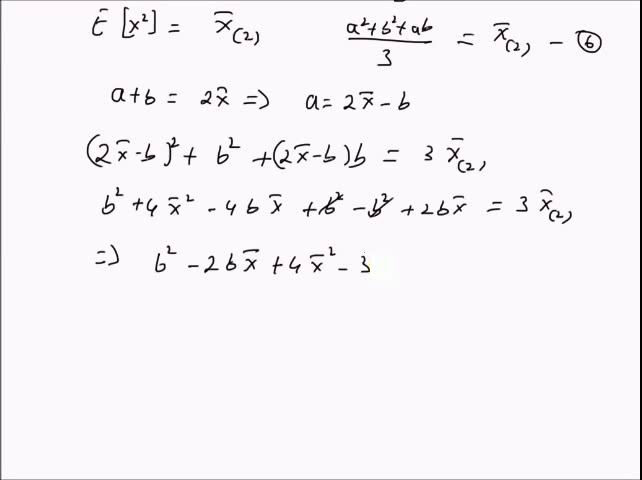 E[x²] = x̄₍₂₎    (a²+b²+ab)/3 = x̄₍₂₎ - ⑥
a+b = 2x̄ => a = 2x̄ - b
(2x̄-b)² + b² + (2x̄-b)b = 3 x̄₍₂₎
b² + 4x̄² - 4bx̄ + b² - b² + 2bx̄ = 3 x̄₍₂₎
=> b² - 2bx̄ + 4x̄² - 3